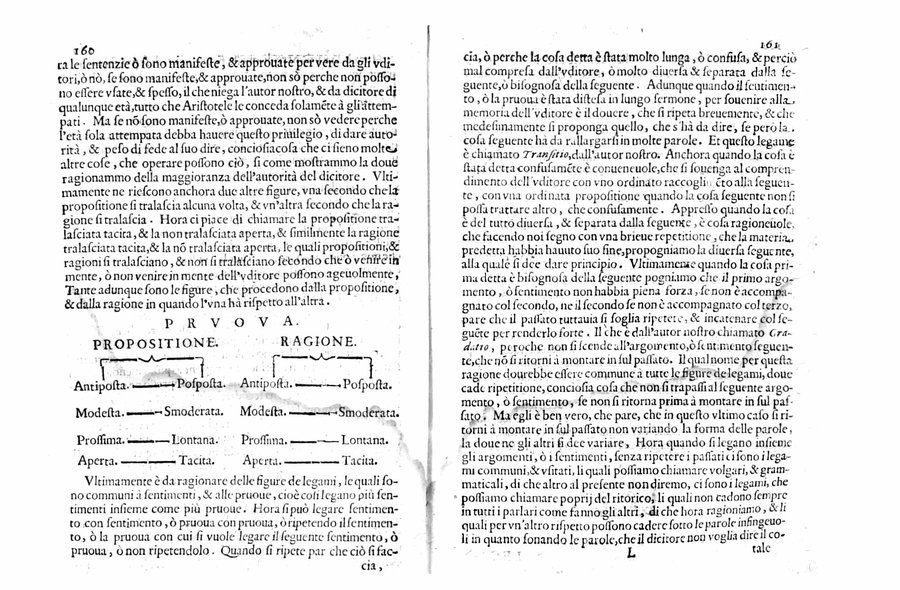 160
ra le sentenzie ò sono manifeste, & approuate per vere da gli vdi-
tori, ò nò, se sono manifeste, & approuate, non sò perche non posso-
no essere vsate, & spesso, il che niega l'autor nostro, & da dicitore di
qualunque età, tutto che Aristotele le conceda solamẽte à gli attem-
pati. Ma se nõ sono manifeste, ò approuate, non sò vedere perche
l'età sola attempata debba hauere questo priuilegio, di dare auto-
rità, & peso di fede al suo dire, conciosiacosa che ci sieno molte
altre cose, che operare possono ciò, si come mostrammo la doue
ragionammo della maggioranza dell'autorità del dicitore. Vlti-
mamente ne riescono anchora due altre figure, vna secondo che la
propositione si tralascia alcuna volta, & vn'altra secondo che la ra-
gione si tralascia. Hora ci piace di chiamare la propositione tra-
lasciata tacita, & la non tralasciata aperta, & similmente la ragione
tralasciata tacita, & la nõ tralasciata aperta, le quali propositioni, &
ragioni si tralasciano, & non si tralasciano secondo che ò venire in
mente, ò non venire in mente dell'vditore possono ageuolmente,
Tante adunque sono le figure, che procedono dalla propositione,
& dalla ragione in quando l'vna hà rispetto all'altra.
PRVOVA.
PROPOSITIONE. RAGIONE.
Antiposta. Posposta. Antiposta. Posposta.
Modesta. Smoderata. Modesta. Smoderata.
Prossima. Lontana. Prossima. Lontana.
Aperta. Tacita. Aperta. Tacita.
Vltimamente è da ragionare delle figure de legami, le quali so-
no communi à sentimenti, & alle pruoue, cioè così legano più sen-
timenti insieme come più pruoue. Hora si può legare sentimen-
to con sentimento, ò pruoua con pruoua, ò ripetendo il sentimen-
to, ò la pruoua con cui si vuole legare il seguente sentimento, ò
pruoua, ò non ripetendolo. Quando si ripete par che ciò si fac-
cia,
161
cia, ò perche la cosa detta è stata molto lunga, ò confusa, & perciò
mal compresa dall'vditore, ò molto diuersa & separata dalla se-
guente, ò bisognosa della seguente. Adunque quando il sentimen-
to, ò la pruoua è stata distesa in lungo sermone, per souenire alla
memoria dell'vditore è il douere, che si ripeta breuemente, & che
medesimamente si proponga quello, che s'hà da dire, se però la
cosa seguente hà da rallargarsi in molte parole. Et questo legame
è chiamato Transitio, dall'autor nostro. Anchora quando la cosa è
stata detta confusamẽte è conueneuole, che si souenga al compren-
dimento dell'vditore con vno ordinato raccoglimẽto alla seguen-
te, con vna ordinata propositione quando la cosa seguente non si
possa trattare altro, che confusamente. Appresso quando la cosa
è del tutto diuersa, & separata dalla seguente, è cosa ragioneuole,
che facendo noi segno con vna brieue repetitione, che la materia
predetta habbia hauuto suo fine, proponiamo la diuersa seguente,
alla quale si dee dare principio. Vltimamente quando la cosa pri-
ma detta è bisognosa della seguente pogniamo che il primo argo-
mento, ò sentimento non habbia piena forza, se non è accompa-
gnato col secondo, ne il secondo se non è accompagnato col terzo,
pare che il passato tuttauia si soglia ripetere, & incatenare col se-
guẽte per renderlo forte. Il che è dall'autor nostro chiamato Gra-
datio, peroche non si scende all'argomento, ò sentimento seguen-
te, che nõ si ritorni à montare in sul passato. Il qual nome per questa
ragione dourebbe essere commune à tutte le figure de legami, doue
cade ripetitione, conciosia cosa che non si trapassi al seguente argo-
mento, ò sentimento, se non si ritorna prima à montare in sul pas-
sato. Ma egli è ben vero, che pare, che in questo vltimo caso si ri-
torni à montare in sul passato non variando la forma delle parole,
la doue ne gli altri si dee variare, Hora quando si legano insieme
gli argomenti, ò i sentimenti, senza ripetere i passati ci sono i lega-
mi communi, & vsitati, li quali possiamo chiamare volgari, & gram-
maticali, di che altro al presente non diremo, ci sono i legami, che
possiamo chiamare poprij del ritorico, li quali non cadono sempre
in tutti i parlari come fanno gli altri, di che hora ragioniamo, & li
quali per vn'altro rispetto possono cadere sotto le parole infingeuo-
li in quanto sonando le parole, che il dicitore non voglia dire il co-
L tale